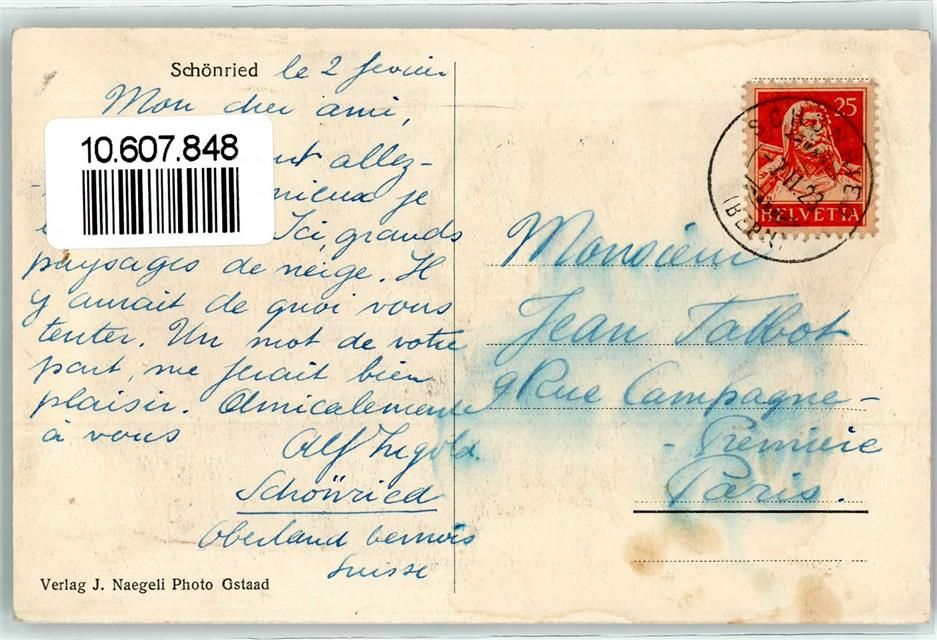 Schönried le 2 fevrier
Mon cher ami,
10.607.848
allez-
mieux je
Ici, grands
paysages de neige. Il
y aurait de quoi vous
tenter. Un mot de votre
part, me ferait bien
plaisir. Amicalement
à vous
Alf Ingold.
Schönried
Oberland bernois
Suisse
Verlag J. Naegeli Photo Gstaad
25
HELVETIA
(BERN)
Monsieur
Jean Talbot
9 Rue Campagne-
- Première
Paris.